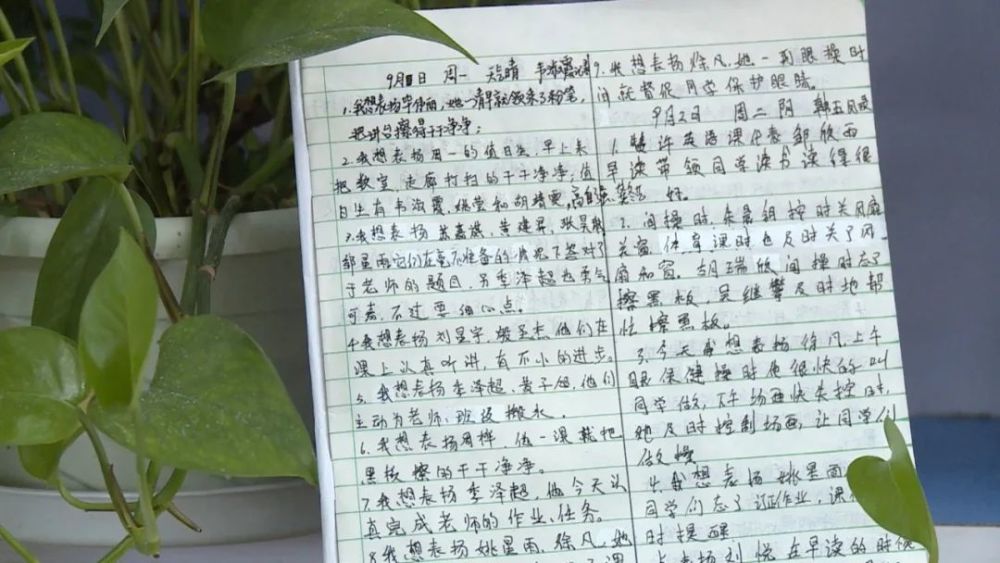 9月1日 周一 天气晴 韦淑霞
1.我想表扬毕伟丽,她一清早就领来了粉笔,
把讲台擦得干干净净;
2.我想表扬周一的值日生,早上来
把教室,走廊打扫的干干净净,值
日生有韦淑霞,姚莹和胡靖雯,
3.我想表扬
邹星雨它们在毫不准备的情况下答对了
于老师的题目,另李泽超也勇气
可嘉,不过要细心点。
4.我想表扬刘星宇,他们在
课上认真听讲,有不小的进步。
5.我想表扬李泽超、黄子旭,他们
主动为老师、班级搬水。
6.我想表扬周桦,值一课就把
黑板擦的干干净净。
7.我想表扬李泽超,他今天认
真完成老师的作业、任务。
8.我想表扬姚星雨、徐凡,她
9.我想表扬徐凡,她一到眼操时
间就督促同学保护眼睛。
9月2日 周二 阴 韩五风
1.英语课代表邹欣西
早读带领同学读书读得很
好。
2.间操时,时关风扇
关窗,体育课时也及时关了风
扇和窗。胡瑞 间操时忘了
擦黑板,吴继攀及时地帮
忙擦黑板。
3.今天我想表扬徐凡,上午
眼保健操时她很快的叫
同学做,下午场面快失控时,
她及时控制场面,让同学们
做操
4.我想表扬姚星雨
同学们忘了记作业,课
时提醒
表扬刘悦在早读的时候